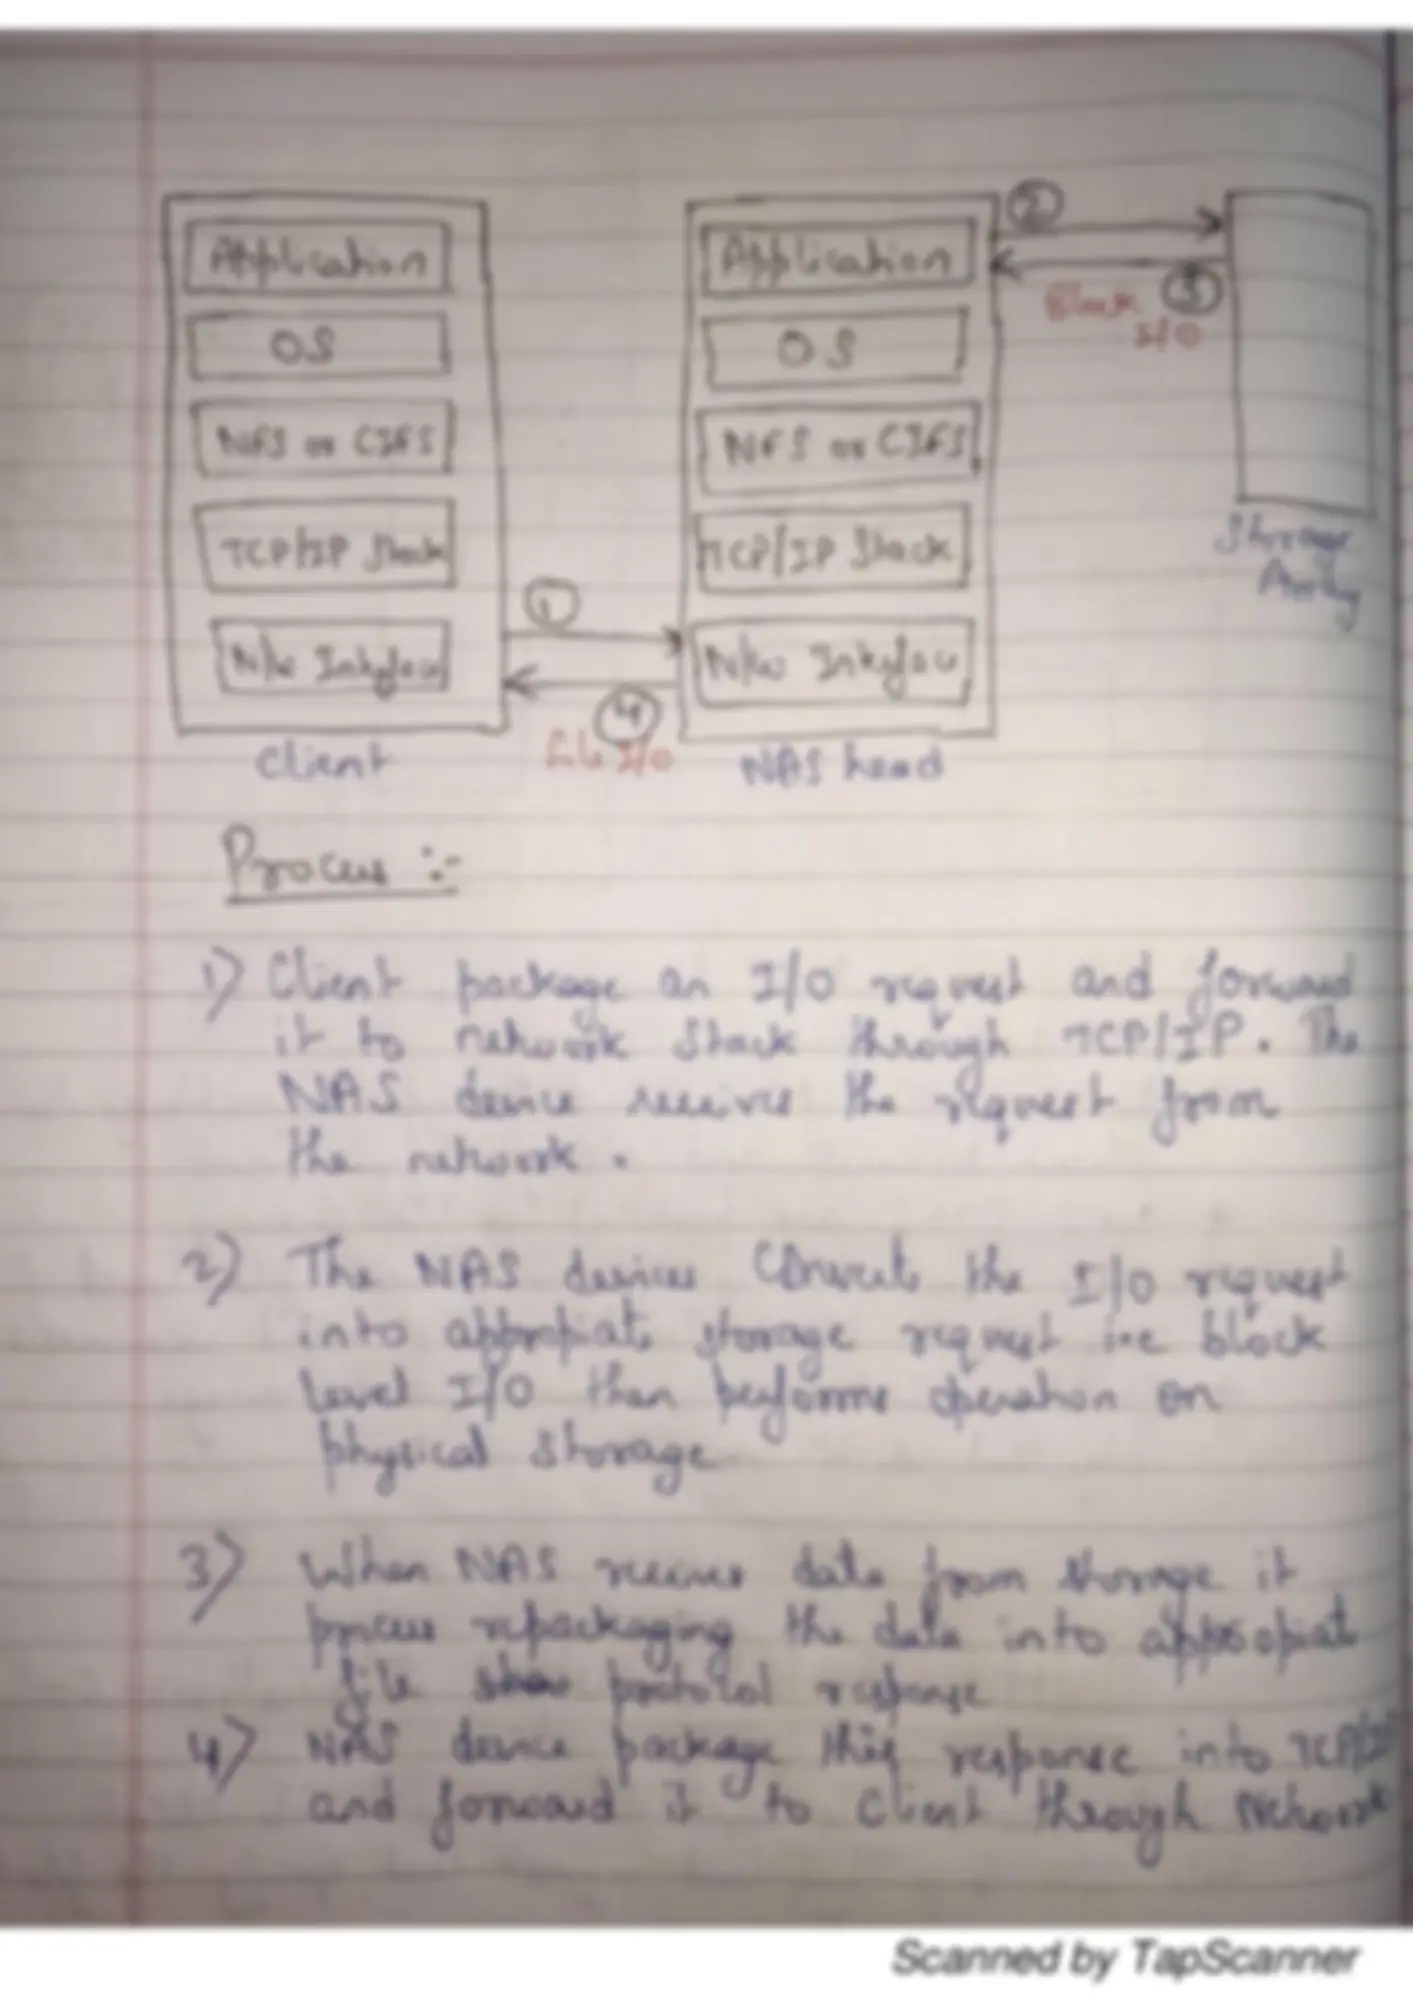 Application
OS
NFS or CIFS
TCP/IP Stack
N/w Interface
Client
Application
OS
NFS or CIFS
TCP/IP Stack
N/w Interface
NAS head
2
3
Block
I/O
Storage
Array
1
4
file I/O
Process :-
1) Client package an I/O request and forward
it to network stack through TCP/IP. The
NAS device receives the request from
the network.
2) The NAS devices converts the I/O request
into appropiate storage request i.e block
level I/O then performs operation on
physical storage
3) When NAS receives data from storage it
process repackaging the data into appropiate
file protocol response
4) NAS device package this response into TCP/IP
and forward it to client through Network
Scanned by TapScanner